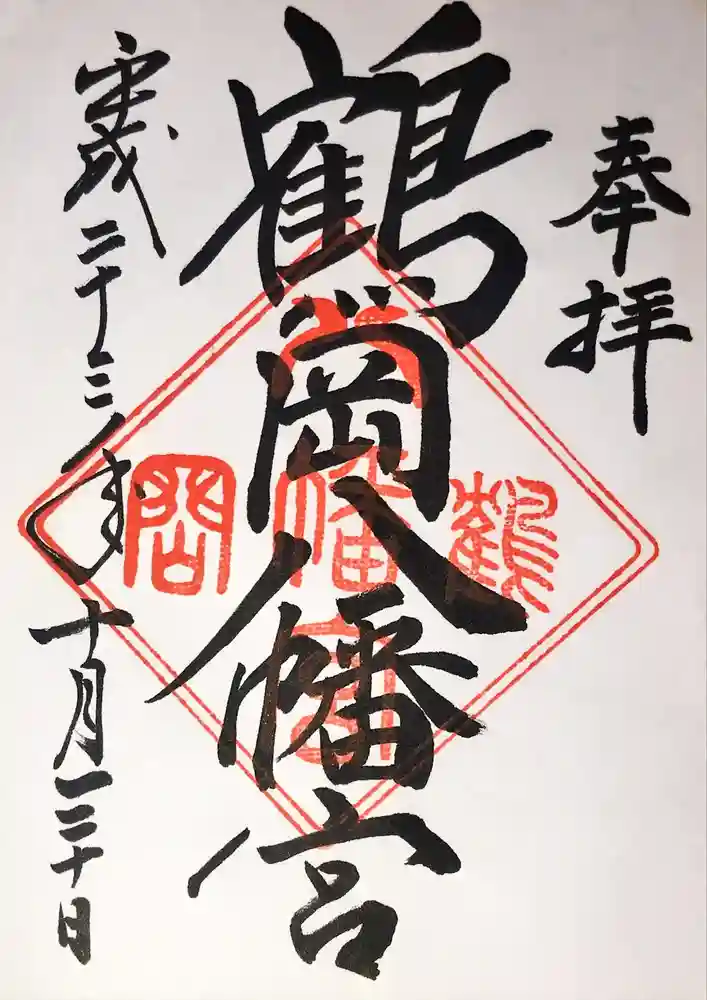 奉拝
鶴岡八幡宮
平成二十三年十月三十日
鶴
八幡宮
岡